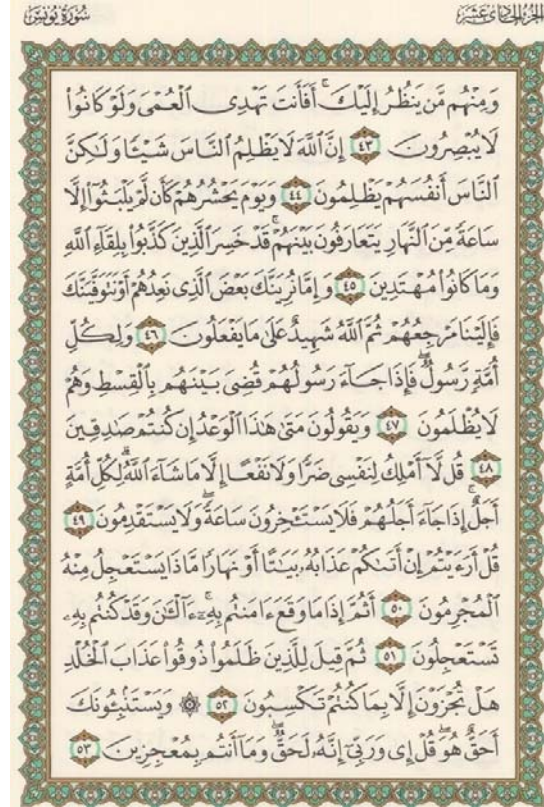 الجزء الحادي عشر
سورة يونس
وَمِنْهُم مَّن يَنظُرُ إِلَيْكَ ۚ أَفَأَنتَ تَهْدِى ٱلْعُمْىَ وَلَوْ كَانُوا۟
لَا يُبْصِرُونَ ٤٣ إِنَّ ٱللَّهَ لَا يَظْلِمُ ٱلنَّاسَ شَيْـًٔا وَلَـٰكِنَّ
ٱلنَّاسَ أَنفُسَهُمْ يَظْلِمُونَ ٤٤ وَيَوْمَ يَحْشُرُهُمْ كَأَن لَّمْ يَلْبَثُوٓا۟ إِلَّا
سَاعَةً مِّنَ ٱلنَّهَارِ يَتَعَارَفُونَ بَيْنَهُمْ ۚ قَدْ خَسِرَ ٱلَّذِينَ كَذَّبُوا۟ بِلِقَآءِ ٱللَّهِ
وَمَا كَانُوا۟ مُهْتَدِينَ ٤٥ وَإِمَّا نُرِيَنَّكَ بَعْضَ ٱلَّذِى نَعِدُهُمْ أَوْ نَتَوَفَّيَنَّكَ
فَإِلَيْنَا مَرْجِعُهُمْ ثُمَّ ٱللَّهُ شَهِيدٌ عَلَىٰ مَا يَفْعَلُونَ ٤٦ وَلِكُلِّ
أُمَّةٍ رَّسُولٌ ۖ فَإِذَا جَآءَ رَسُولُهُمْ قُضِىَ بَيْنَهُم بِٱلْقِسْطِ وَهُمْ
لَا يُظْلَمُونَ ٤٧ وَيَقُولُونَ مَتَىٰ هَـٰذَا ٱلْوَعْدُ إِن كُنتُمْ صَـٰدِقِينَ
٤٨ قُل لَّآ أَمْلِكُ لِنَفْسِى ضَرًّا وَلَا نَفْعًا إِلَّا مَا شَآءَ ٱللَّهُ ۗ لِكُلِّ أُمَّةٍ
أَجَلٌ ۚ إِذَا جَآءَ أَجَلُهُمْ فَلَا يَسْتَـْٔخِرُونَ سَاعَةً ۖ وَلَا يَسْتَقْدِمُونَ ٤٩
قُلْ أَرَءَيْتُمْ إِنْ أَتَىٰكُمْ عَذَابُهُۥ بَيَـٰتًا أَوْ نَهَارًا مَّاذَا يَسْتَعْجِلُ مِنْهُ
ٱلْمُجْرِمُونَ ٥٠ أَثُمَّ إِذَا مَا وَقَعَ ءَامَنتُم بِهِۦٓ ۚ ءَآلْـَٔـٰنَ وَقَدْ كُنتُم بِهِۦ
تَسْتَعْجِلُونَ ٥١ ثُمَّ قِيلَ لِلَّذِينَ ظَلَمُوا۟ ذُوقُوا۟ عَذَابَ ٱلْخُلْدِ
هَلْ تُجْزَوْنَ إِلَّا بِمَا كُنتُمْ تَكْسِبُونَ ٥٢ ۞ وَيَسْتَنۢبِـُٔونَكَ
أَحَقٌّ هُوَ ۖ قُلْ إِى وَرَبِّىٓ إِنَّهُۥ لَحَقٌّ ۖ وَمَآ أَنتُم بِمُعْجِزِينَ ٥٣